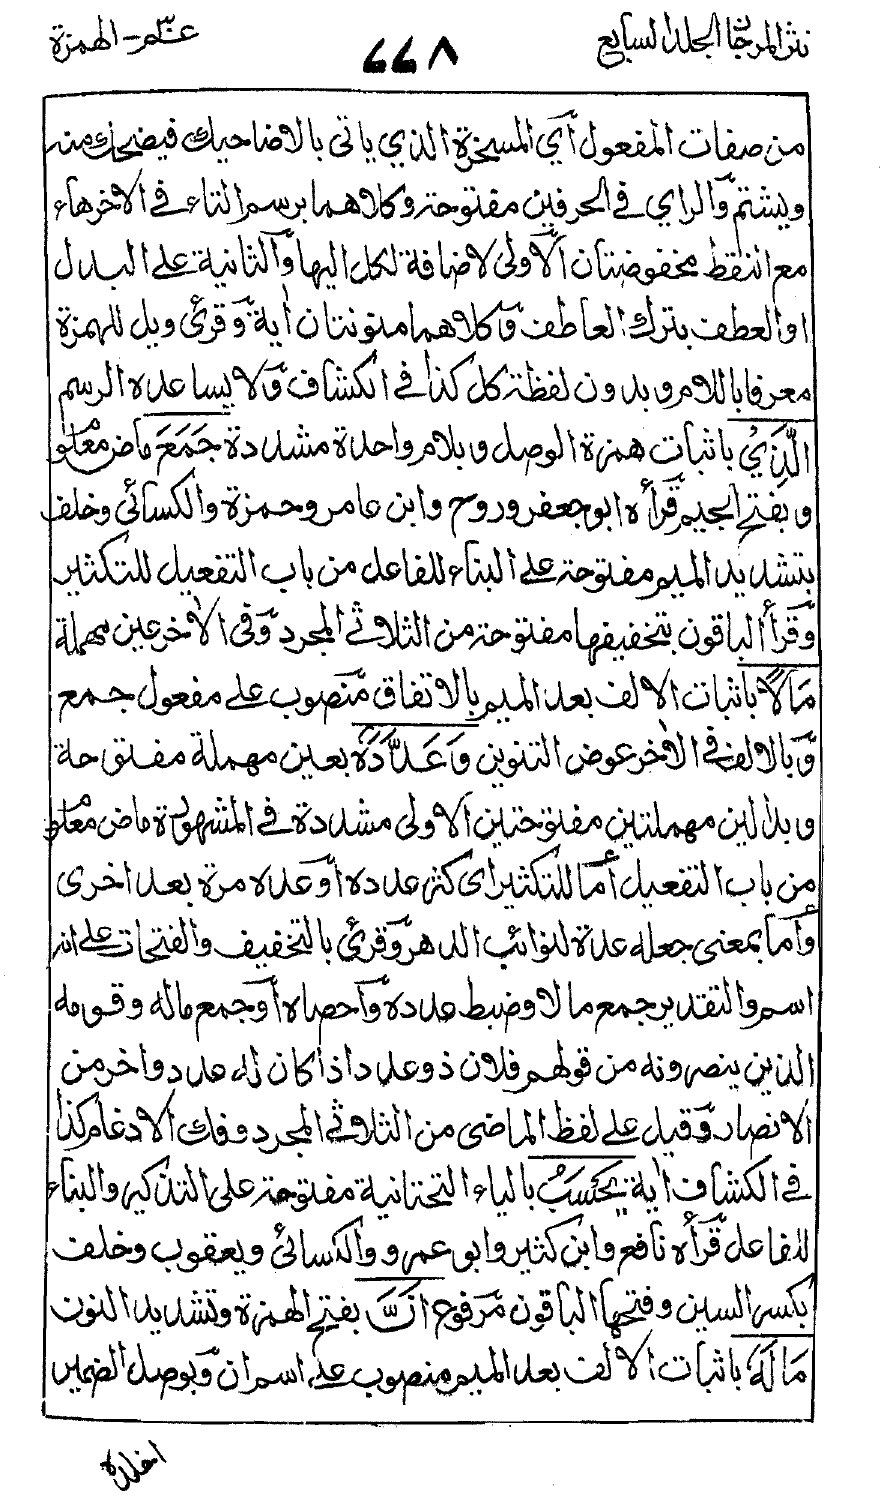 نثر المرجان الجلد السابع
٧٧٨
عمّ - الهمزة
من صفات المفعول أي المسخرة الذي ياتى بالاضاحيك فيضحك منه
ويشتم والزاي في الحرفين مفتوحة وكلاهما برسم التاء في الاخر هاء
مع النقط مخفوضتان الاولى لاضافة لكل اليها والثانية على البدل
او العطف بترك العاطف وكلاهما منونتان اية وقرئ ويل للهمزة
معرفا باللام وبدون لفظة كل كذا في الكشاف ولا يساعده الرسم
الَّذِيْ باثبات همزة الوصل وبلام واحدة مشددة جَمَعَ ماض معلوم
وبفتح الجيم قرأه ابو جعفر وروح وابن عامر وحمزة والكسائى وخلف
بتشديد الميم مفتوحة على البناء للفاعل من باب التفعيل للتكثير
وقرأ الباقون بتخفيفها مفتوحة من الثلاثي المجرد وفى الاخر عين مهملة
مَالًا باثبات الالف بعد الميم بالاتفاق منصوب على مفعول جمع
وبالالف في الاخر عوض التنوين وَعَدَّدَهٗ بعين مهملة مفتوحة
وبدالين مهملتين مفتوحتين الاولى مشددة في المشهورة ماض معلوم
من باب التفعيل أما للتكثير اى كثر عدده او عده مرة بعد اخرى
وأما بمعنى جعله عدة لنوائب الدهر وقرئ بالتخفيف والفتحات على انه
اسم والتقدير جمع مالا وضبط عدده وأحصاه أو جمع ماله وقومه
الذين ينصرونه من قولهم فلان ذو عدد اذا كان له عدد وافر من
الانصار وقيل على لفظ الماضى من الثلاثي المجرد وفك الادغام كذا
في الكشاف اية يَحْسَبُ بالياء التحتانية مفتوحة على التذكير والبناء
للفاعل قرأه نافع وابن كثير وابو عمرو والكسائى ويعقوب وخلف
بكسر السين وفتحها الباقون مرفوع اَنَّ بفتح الهمزة وتشديد النون
مَالَهٗ باثبات الالف بعد الميم منصوب على اسم ان وبوصل الضمير
اخلده